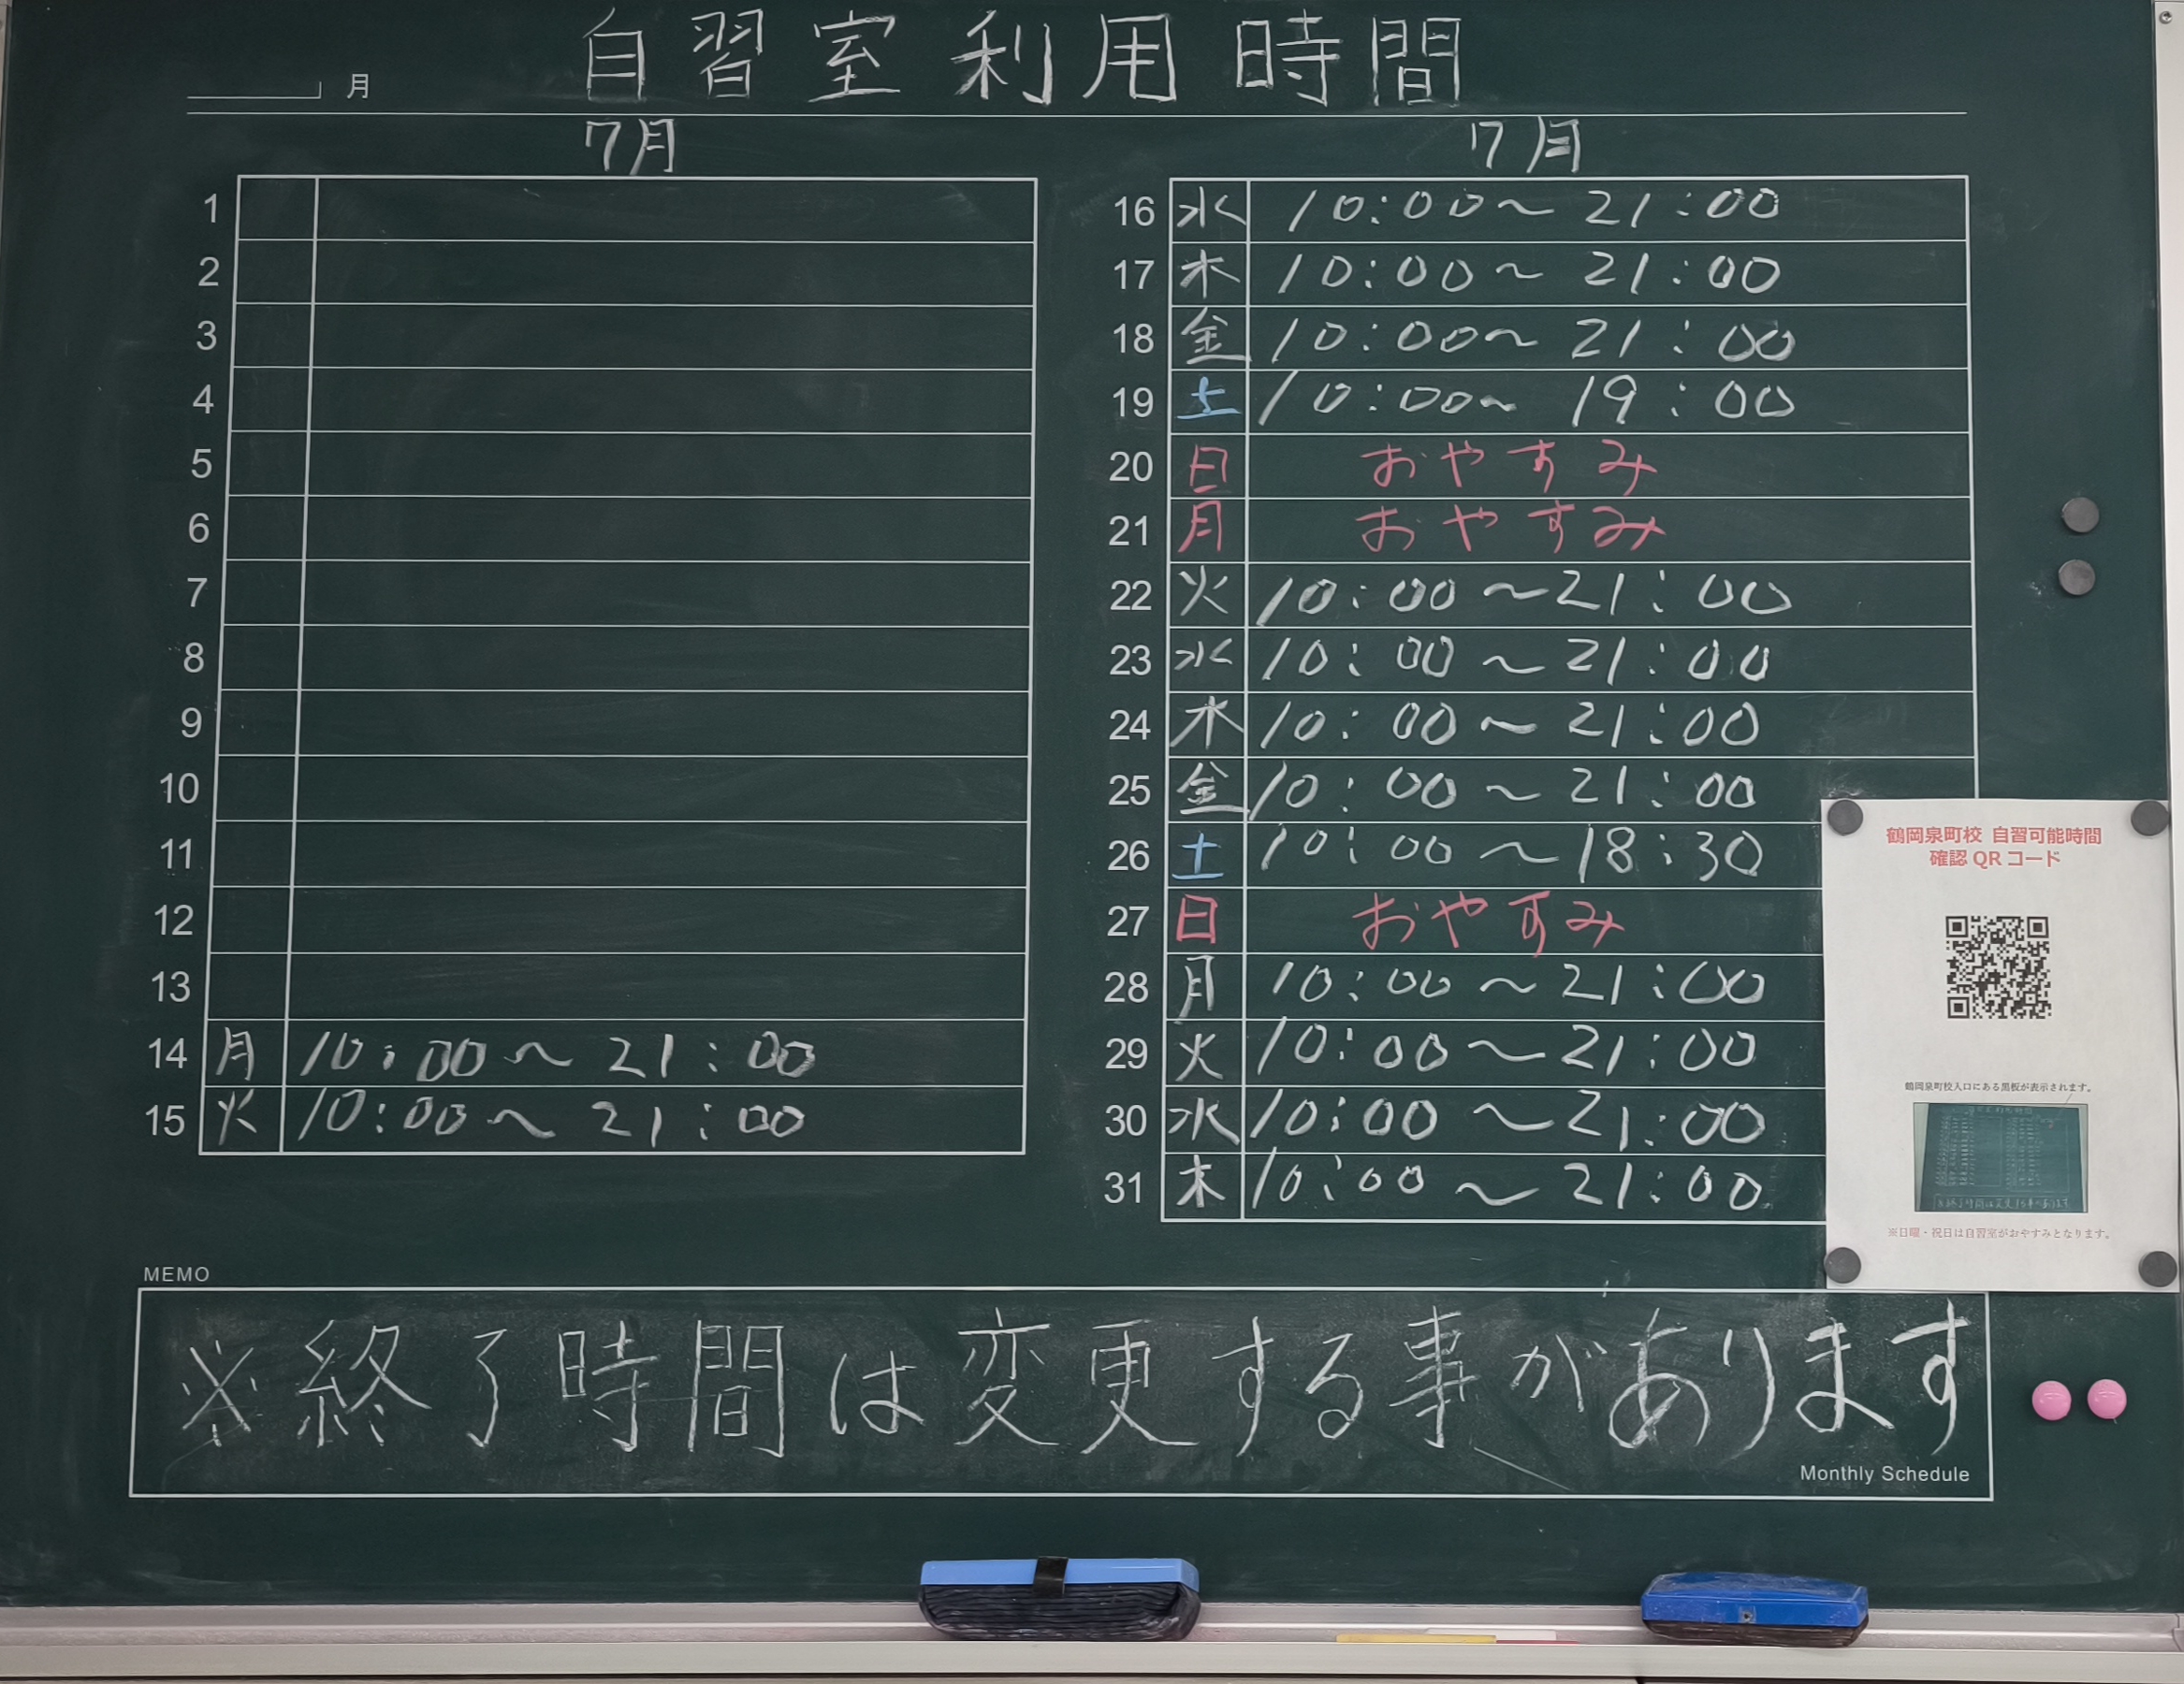 自習室利用時間
月
7月
1
2
3
4
5
6
7
8
9
10
11
12
13
14 月 10:00〜21:00
15 火 10:00〜21:00
7月
16 水 10:00〜21:00
17 木 10:00〜21:00
18 金 10:00〜21:00
19 土 10:00〜19:00
20 日 おやすみ
21 月 おやすみ
22 火 10:00〜21:00
23 水 10:00〜21:00
24 木 10:00〜21:00
25 金 10:00〜21:00
26 土 10:00〜18:30
27 日 おやすみ
28 月 10:00〜21:00
29 火 10:00〜21:00
30 水 10:00〜21:00
31 木 10:00〜21:00
鶴岡泉町校 自習可能時間
確認QRコード
鶴岡泉町校入口にある黒板が表示されます。
※日曜・祝日は自習室がおやすみとなります。
MEMO
※終了時間は変更する事があります
Monthly Schedule